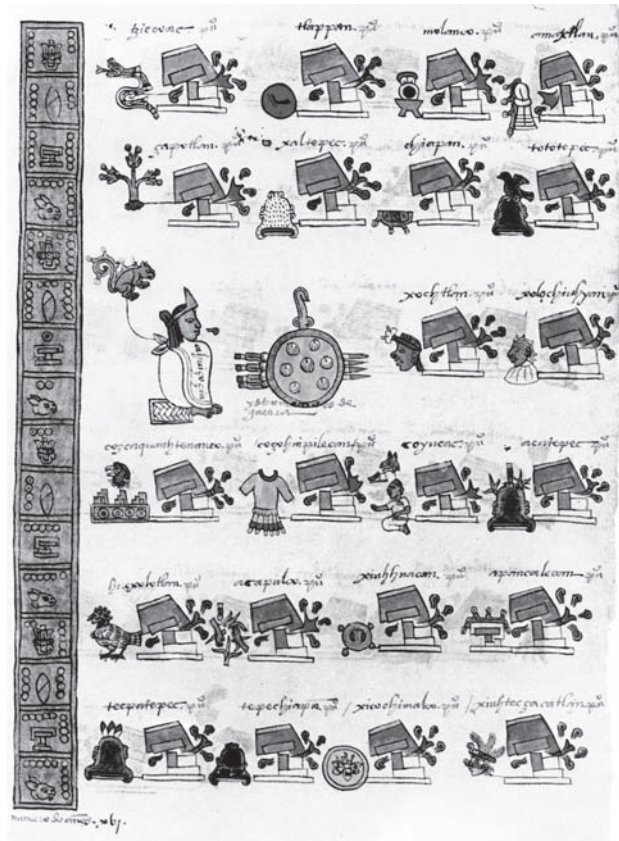 tzicovac. pũ tlappan. pũ molanco. pũ amaxtlan. pũ
çapotlan. pũ xaltepec. pũ chiapan. pũ tototepec. pũ
xochtlan. pũ xolochiuhyan. pũ
de
guerra
cozcaquauhtenanco. pũ coçohuipilecan. pũ coyucac. pũ acatepec. pũ
huexolotlan. pũ acapulco. pũ xiuhhuacan. pũ apancalecan pũ
tecpatepec. pũ tepechiapa pũ / xicochimalco. pũ / xiuhteçacatlan. pũ
numero de años. xvi.